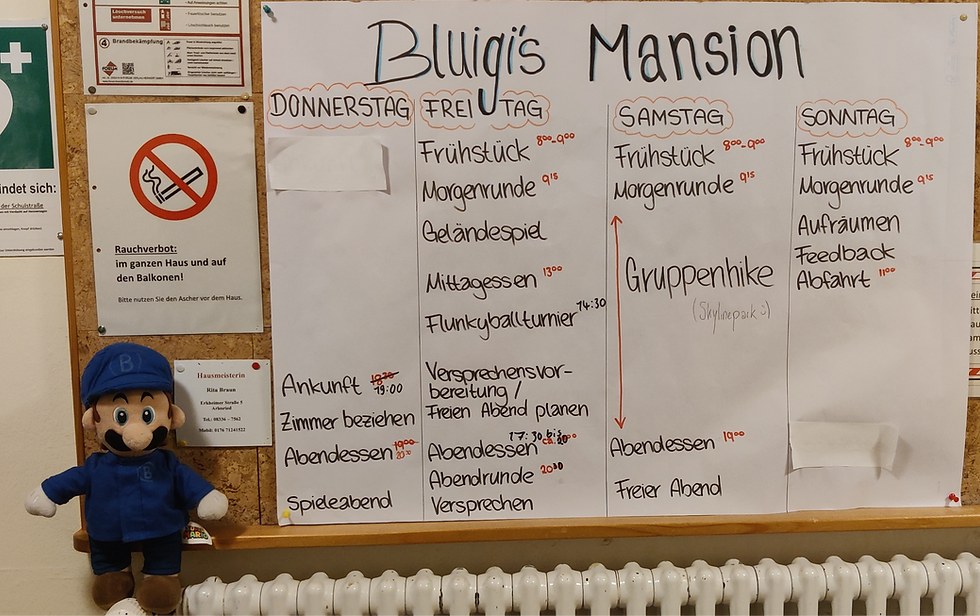 Bluigi's Mansion
DONNERSTAG
Ankunft 18:30 19:00
Zimmer beziehen
Abendessen 19:00 20:30
Spieleabend
FREITAG
Frühstück 8:00-9:00
Morgenrunde 9:15
Geländespiel
Mittagessen 13:00
Flunkyballturnier 14:30
Versprechensvor-
bereitung /
Freien Abend planen
17:30 bis
Abendessen
Abendrunde 20:30
Versprechen
SAMSTAG
Frühstück 8:00-9:00
Morgenrunde 9:15
Gruppenhike
(Skylinepark :))
Abendessen 19:00
Freier Abend
SONNTAG
Frühstück 8:00-9:00
Morgenrunde 9:15
Aufräumen
Feedback
Abfahrt 11:00
Löschversuch
unternehmen
4 Brandbekämpfung
indet sich:
der Schulstraße
Rauchverbot:
im ganzen Haus und auf
den Balkonen!
Bitte nutzen Sie den Ascher vor dem Haus.
Hausmeisterin
Rita Braun
Erkheimer Straße 5
Arlesried
Tel.: 08336 – 7562
Mobil: 0176 71241522
B
B